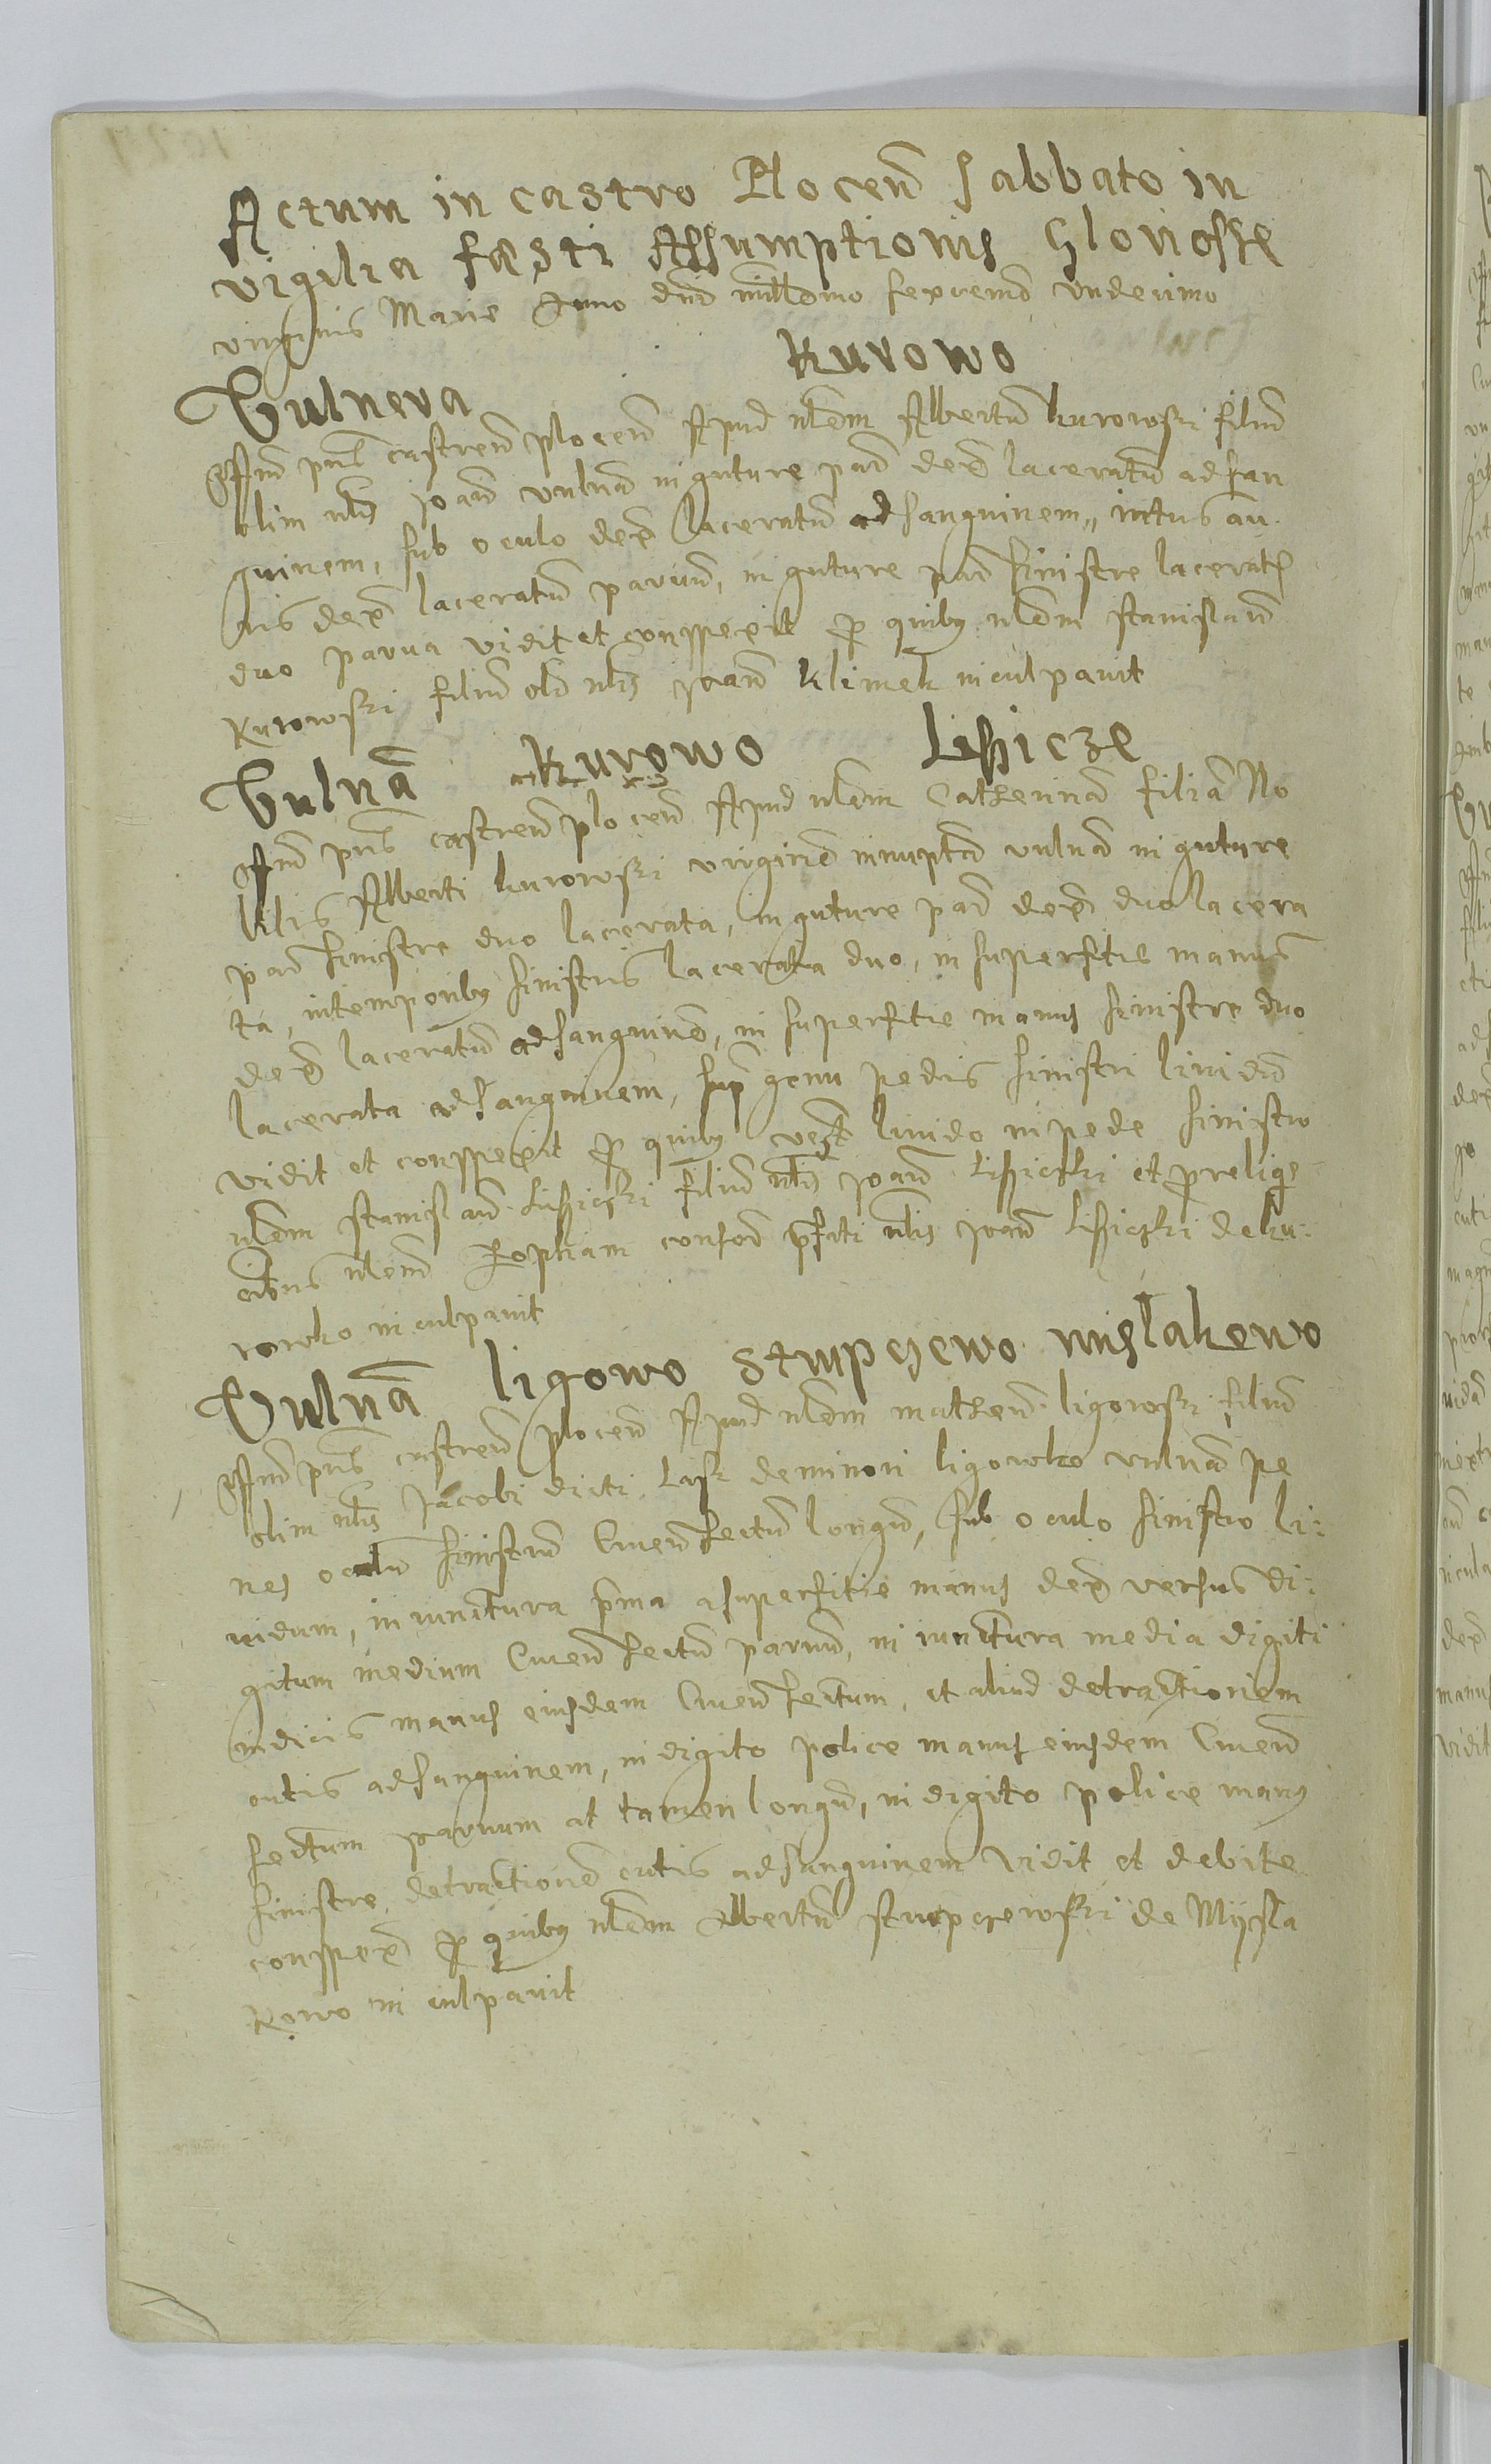 Actum in castro Plocen Sabbato in
vigilia festi Assumptionis Gloriosse
virginis Marie Anno dni millemo sexcenmo Undecimo
Kurowo
Vulnera
Offium pns castren plocen Apud nlem Albertu kurowski filiu
olim nlis Joan vulnea in guture par dex laceratu ad san
guinem, sub oculo dex laceratu ad sanguinem, intus au
ris dex laceratu parvu, in guture par sinistre lacerata
duo parua vidit et conspexit p quibus nlem stanislau
Kurowski filiu oli nlis Joan klimek inculpauit
Vulnea Kurowo Lisicze
Offiu pns castren plocen Apud nlem Catherina filia No
bilis Alberti kurowski virgine innupta vulnea in guture
par sinistre duo lacerata, in guture par dex duo lacera
ta, in temporibus sinistris lacerata duo, in superfitie manus
dex laceratu ad sanguine, in superfitie manus sinistre duo
lacerata ad sanguinem, sup genu pedis sinistri liuidu
vidit et conspexit p quibus liuido in pede sinistro
nlem stanislau Lisicski filiu nlis Joan Lisicski et p relique
oibus nlem Zophiam consor pfati nlis Joan Lisicski de ku-
rowko inculpauit
Vulnea ligowo Strupczewo mislakowo
Offiu pns castren plocen Apud nlem matheu ligowski filiu
olim nlis Jacobi dicti Lask de minori ligowko vulnea pe
nes oculu sinistru Cruen sectu longu, sub oculo sinistro li-
uidum, in iunctura pma a superfitie manus dex versus di-
gitum medium Cruen sectu paruu, in iunctura media digiti
indicis manus eiusdem Cruen sectum, et aliud detractionem
cutis ad sanguinem, in digito police manus eiusdem Cruen
sectum paruum at tamen longu, in digito police manus
sinistre detractione cutis ad sanguinem vidit et debite
conspex p quibus nlem Albertu strupczewski de Mysla
kowo inculpauit